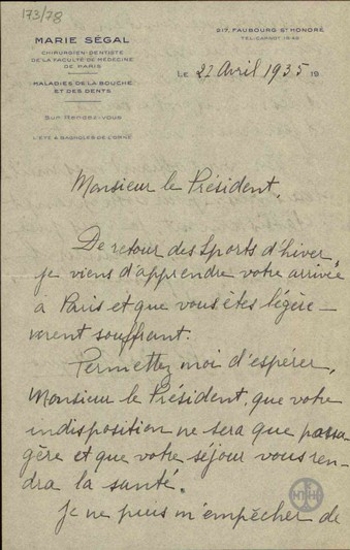 173/78
MARIE SÉGAL
CHIRURGIEN-DENTISTE
DE LA FACULTÉ DE MÉDECINE
DE PARIS
MALADIES DE LA BOUCHE
ET DES DENTS
SUR RENDEZ-VOUS
L'ÉTÉ À BAGNOLES-DE-L'ORNE
217, FAUBOURG ST HONORÉ
TEL. CARNOT
LE 22 Avril 1935 19
Monsieur le Président,
De retour des Sports d'hiver,
je viens d'apprendre votre arrivée
à Paris et que vous êtes légère-
ment souffrant.
Permettez moi d'espérer,
Monsieur le Président, que votre
indisposition ne sera que passa
gère et que votre séjour vous ren-
dra la santé.
Je ne puis m'empêcher de